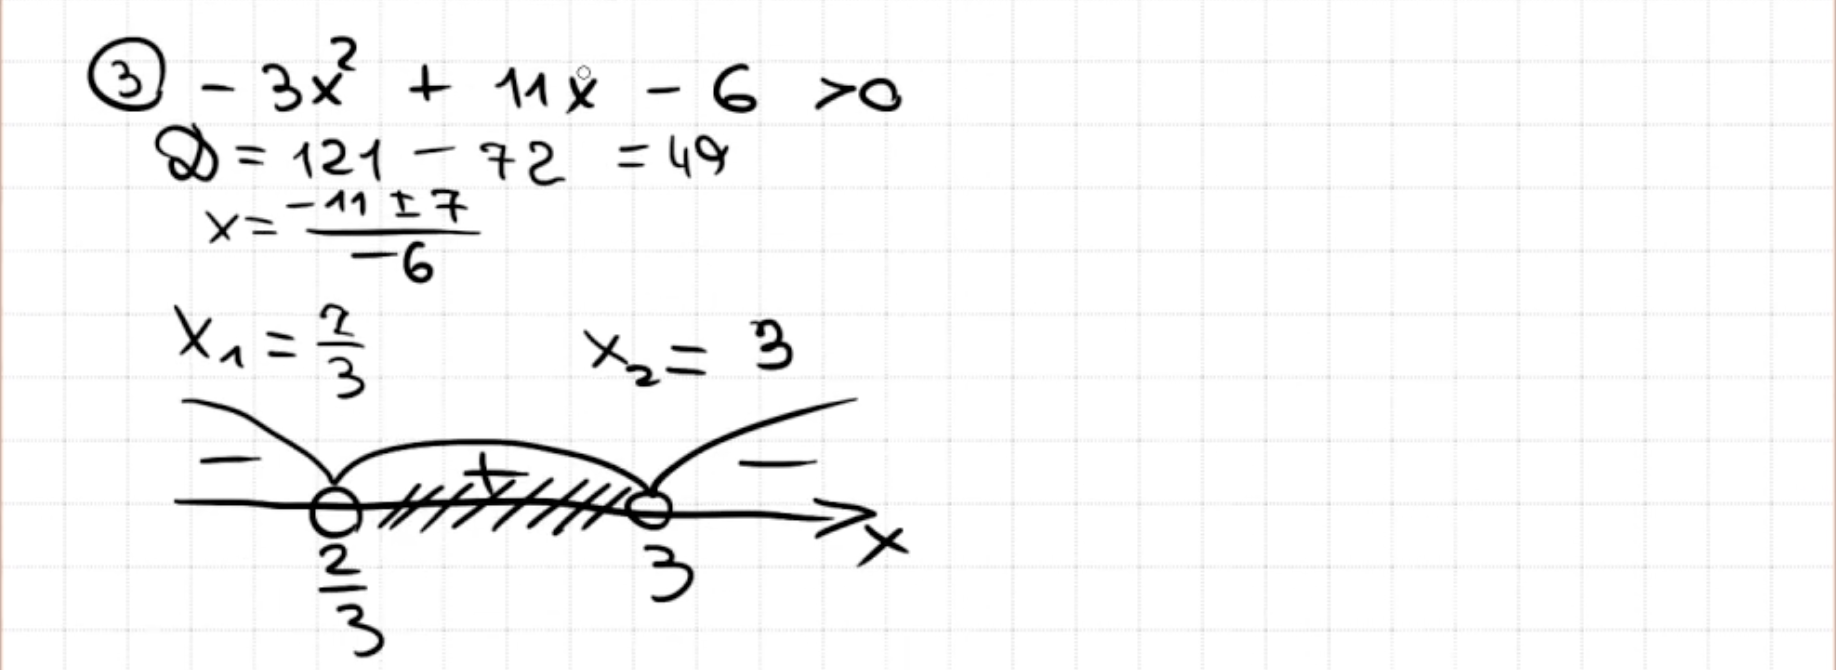 ③ - 3x² + 11x - 6 > 0
D = 121 - 72 = 49
x = (-11 ± 7)/(-6)
x₁ = 2/3 x₂ = 3
- + -
2/3 3 x